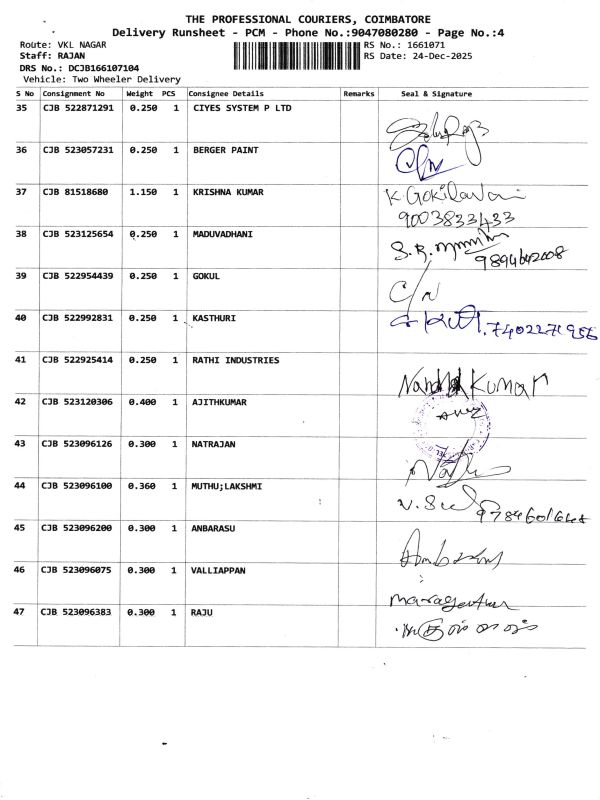 THE PROFESSIONAL COURIERS, COIMBATORE
Delivery Runsheet - PCM - Phone No.:9047080280 - Page No.:4
Route: VKL NAGAR RS No.: 1661071
Staff: RAJAN RS Date: 24-Dec-2025
DRS No.: DCJB166107104
Vehicle: Two Wheeler Delivery
S No Consignment No Weight PCS Consignee Details Remarks Seal & Signature
35 CJB 522871291 0.250 1 CIYES SYSTEM P LTD
36 CJB 523057231 0.250 1 BERGER PAINT
37 CJB 81518680 1.150 1 KRISHNA KUMAR K. Gokilavani
9003833433
38 CJB 523125654 0.250 1 MADUVADHANI S.R.
9894642008
39 CJB 522954439 0.250 1 GOKUL C/N
40 CJB 522992831 0.250 1 KASTHURI 7402271956
41 CJB 522925414 0.250 1 RATHI INDUSTRIES
Kumar
42 CJB 523120306 0.400 1 AJITHKUMAR
43 CJB 523096126 0.300 1 NATRAJAN
44 CJB 523096100 0.360 1 MUTHU;LAKSHMI
45 CJB 523096200 0.300 1 ANBARASU
46 CJB 523096075 0.300 1 VALLIAPPAN
47 CJB 523096383 0.300 1 RAJU